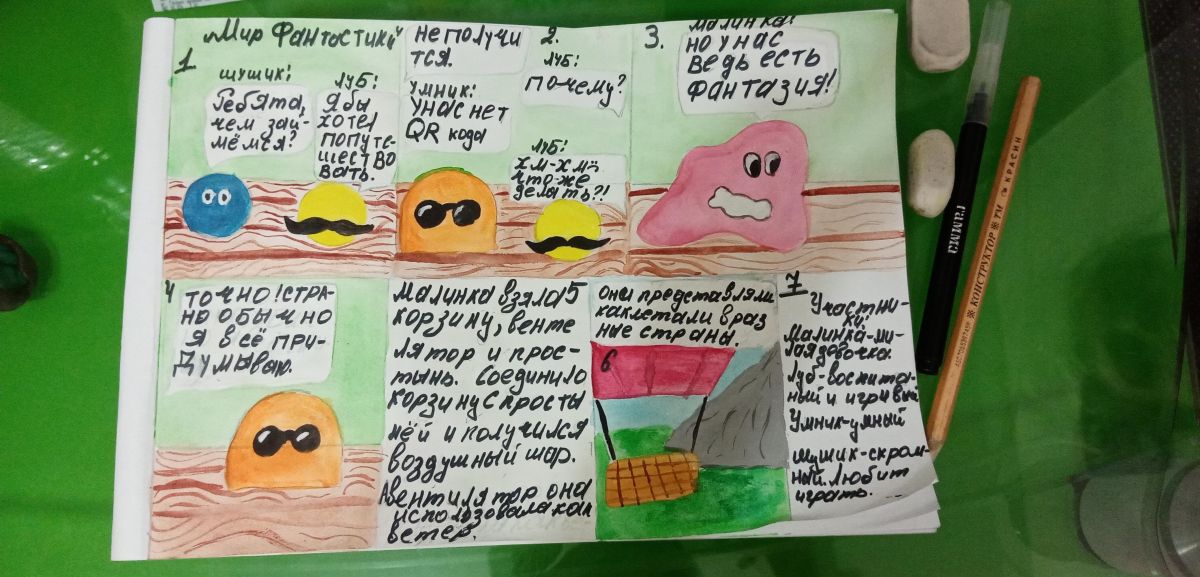 „Мир Фантастики"
1
шушик:
Ребята,
чем зай-
мёмся?
луб:
Я бы
хотел
попуте-
шество
вать.
не получи
тся.
умник:
У нас нет
QR кода
2.
луб:
почему?
луб:
хм-хм..
что-же
делать?!
3.
малинка:
но у нас
ведь есть
фантазия!
4
точно! стра-
но обычно
я всё при-
думываю.
5
малинка взяла
корзину, венте
лятор и прос-
тынь. Соединило
корзину с просты
нёй и получился
воздушный шар.
А вентилятор она
использовала как
ветер.
они представляли
как летали в раз
ные страны.
6
7
Участни-
ки:
малинка-ми-
лая девочка.
Луб-воспита-
ный и игривый
Умник-умный
шушик-скром-
ный. любит
играть.
ГАММА
КОНСТРУКТОР ТМ
КРАСИН